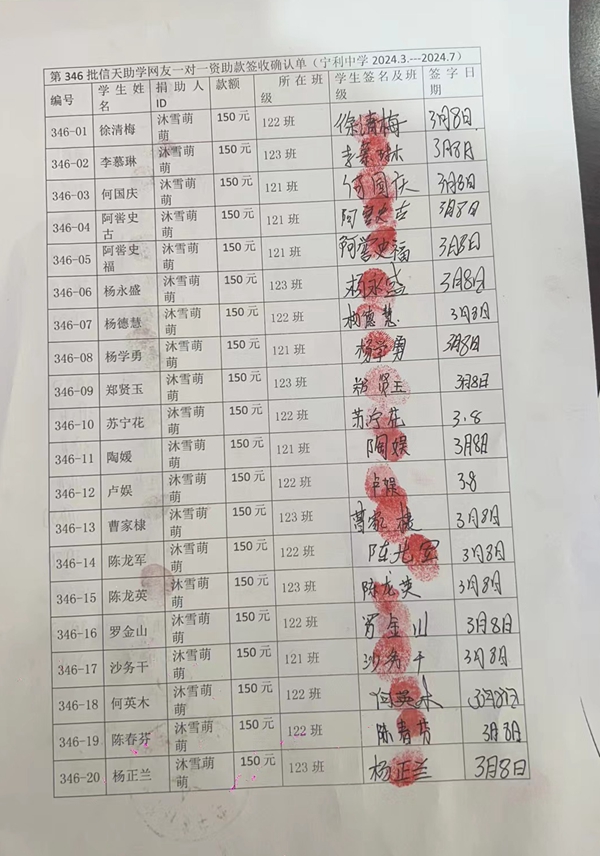 第 346 批信天助学网友一对一资助款签收确认单（宁利中学 2024.3.---2024.7）
编号 学生姓名 捐助人ID 款额 所在班级 学生签名及班级 签字日期
346-01 徐清梅 沐雪萌萌 150 元 122 班 徐清梅 3月8日
346-02 李慕琳 沐雪萌萌 150 元 123 班 李慕琳 3月8日
346-03 何国庆 沐雪萌萌 150 元 121 班 何国庆 3月8日
346-04 阿喾史古 沐雪萌萌 150 元 121 班 阿喾史古 3月8日
346-05 阿喾史福 沐雪萌萌 150 元 121 班 阿喾史福 3月8日
346-06 杨永盛 沐雪萌萌 150 元 123 班 杨永盛 3月8日
346-07 杨德慧 沐雪萌萌 150 元 122 班 杨德慧 3月8日
346-08 杨学勇 沐雪萌萌 150 元 121 班 杨学勇 3月8日
346-09 郑贤玉 沐雪萌萌 150 元 123 班 郑贤玉 3月8日
346-10 苏宁花 沐雪萌萌 150 元 122 班 苏宁花 3.8
346-11 陶媛 沐雪萌萌 150 元 121 班 陶娱 3月8日
346-12 卢娱 沐雪萌萌 150 元 122 班 卢娱 3.8
346-13 曹家棣 沐雪萌萌 150 元 123 班 曹家棣 3月8日
346-14 陈龙军 沐雪萌萌 150 元 122 班 陈龙军 3月8日
346-15 陈龙英 沐雪萌萌 150 元 123 班 陈龙英 3月8日
346-16 罗金山 沐雪萌萌 150 元 122 班 罗金山 3月8日
346-17 沙务干 沐雪萌萌 150 元 121 班 沙务干 3月8日
346-18 何英木 沐雪萌萌 150 元 122 班 何英木 3月8日
346-19 陈春芬 沐雪萌萌 150 元 122 班 陈春芬 3月8日
346-20 杨正兰 沐雪萌萌 150 元 123 班 杨正兰 3月8日